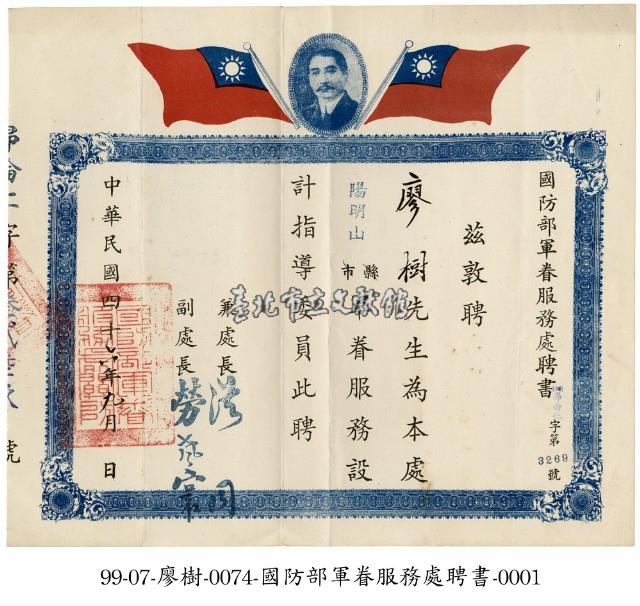 國防部軍眷服務處聘書
字第3269號
茲敦聘
廖樹先生為本處
陽明山縣市軍眷服務設
計指導委員此聘
兼處長
副處長
中華民國四十六年九月 日
字第
號
臺北市立文獻館
99-07-廖樹-0074-國防部軍眷服務處聘書-0001